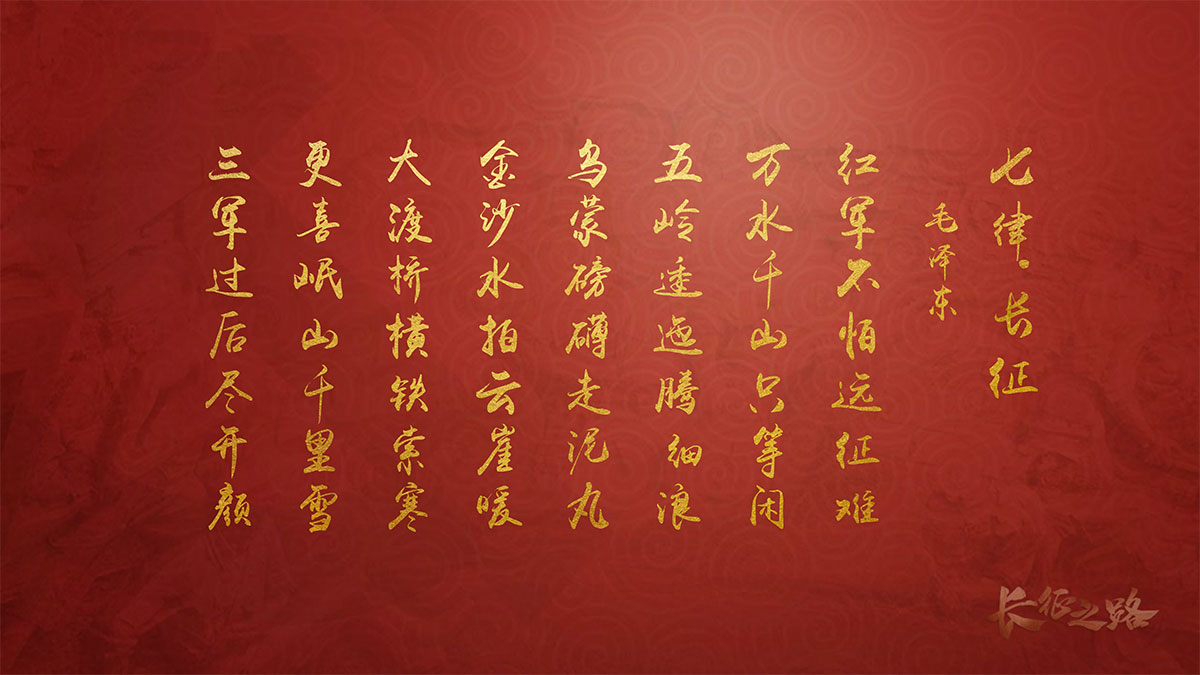 七律·长征
毛泽东
红军不怕远征难
万水千山只等闲
五岭逶迤腾细浪
乌蒙磅礴走泥丸
金沙水拍云崖暖
大渡桥横铁索寒
更喜岷山千里雪
三军过后尽开颜
长征之路